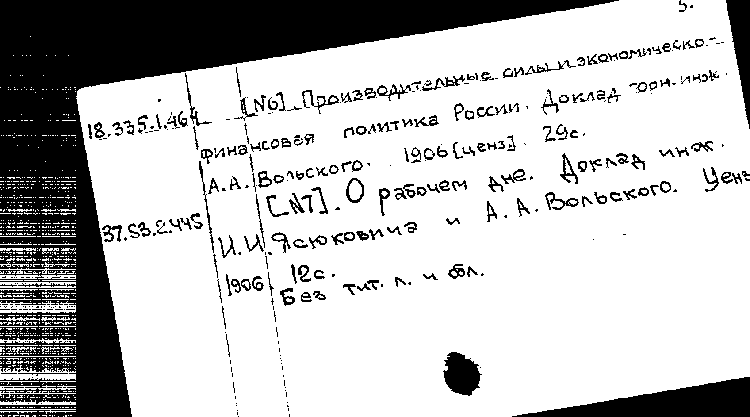 3.
18.335.1.464 [N6]. Производительные силы и экономическо-
финансовая политика России. Доклад горн. инж.
А.А. Вольского. 1906 [ценз]. 29с.
37.53.2.445 [N7]. О рабочем дне. Доклад инж.
И.И. Ясюковича и А.А. Вольского. Ценз
1906. 12с.
Без тит. л. и обл.